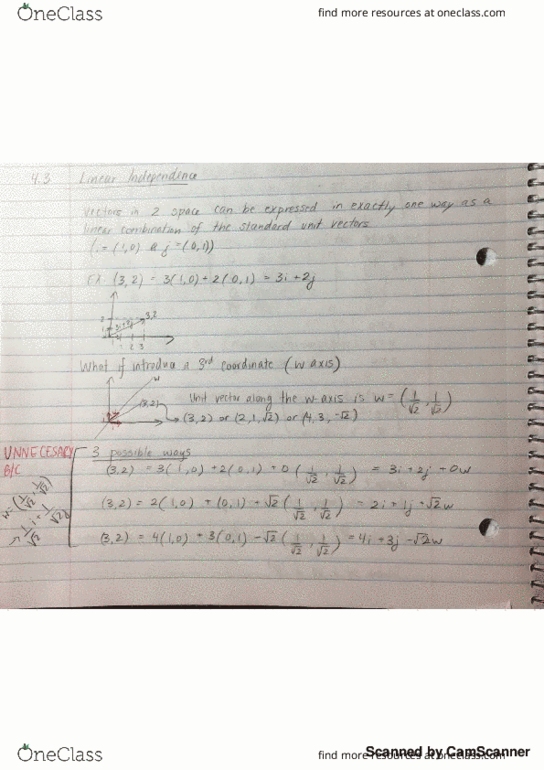 OneClass
find more resources at oneclass.com
4.3 Linear Independence
Vectors in 2 space can be expressed in exactly one way as a
linear combination of the standard unit vectors
(i = (1,0) & j = (0,1))
EX. (3,2) = 3(1,0) + 2(0,1) = 3i + 2j
3,2
What if introduce a 3rd coordinate (w axis)
w
Unit vector along the w-axis is w = (1/√2, 1/√2)
(3,2)
(3,2) or (2,1,√2) or (4,3,-√2)
UNNECESARY
B/C
w = (1/√2, 1/√2)
1/√2 i + 1/√2 j
3 possible ways
(3,2) = 3(1,0) + 2(0,1) + 0(1/√2, 1/√2) = 3i + 2j + 0w
(3,2) = 2(1,0) + (0,1) + √2(1/√2, 1/√2) = 2i + 1j + √2w
(3,2) = 4(1,0) + 3(0,1) - √2(1/√2, 1/√2) = 4i + 3j - √2w
Scanned by CamScanner
OneClass
find more resources at oneclass.com